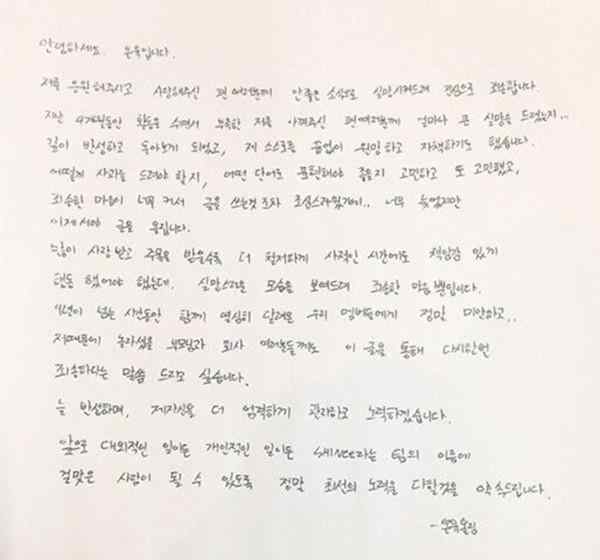 안녕하세요. 온유입니다.
저를 응원해주시고 사랑해주신 팬 여러분께 안좋은 소식으로 실망시켜드려 진심으로 죄송합니다
지난 4개월동안 활동을 쉬면서 부족한 저를 아껴주신 팬여러분께 얼마나 큰 실망을 드렸는지...
깊이 반성하고 돌아보게 되었고, 제 스스로를 끊임없이 원망하고 자책하기도 했습니다.
어떻게 사과를 드려야 할지, 어떤 단어로 표현해야 좋을지 고민하고 또 고민했고,
죄송한 마음이 너무 커서 글을 쓰는것 조차 조심스러웠기에.. 너무 늦었지만
이제서야 글을 올립니다.
많이 사랑 받고 주목을 받을수록 더 철저하게 사적인 시간에도 책임감 있게
행동 했어야 했는데. 실망스러운 모습을 보여드려 죄송한 마음 뿐입니다.
9년이 넘는 시간동안 함께 열심히 달려온 우리 멤버들에게 정말 미안하고..
저때문에 놀라셨을 부모님과 회사 여러분들께도 이 글을 통해 다시한번
죄송하다는 말씀 드리고 싶습니다.
늘 반성하며, 제자신을 더 엄격하게 관리하고 노력하겠습니다.
앞으로 대외적인 일이든 개인적인 일이든 SHINee라는 팀의 이름에
걸맞은 사람이 될 수 있도록 정말 최선의 노력을 다할것을 약속드립니다.
-온유올림